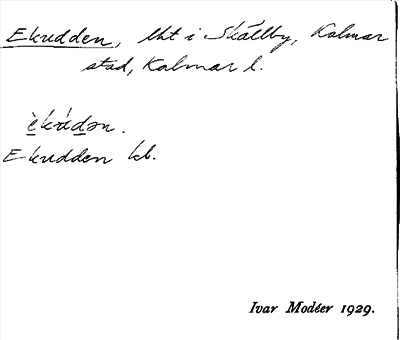 Ekudden, lht i Skällby, Kalmar
stad, Kalmar l.
èkúdən.
Ekudden kb.
Ivar Modéer 1929.